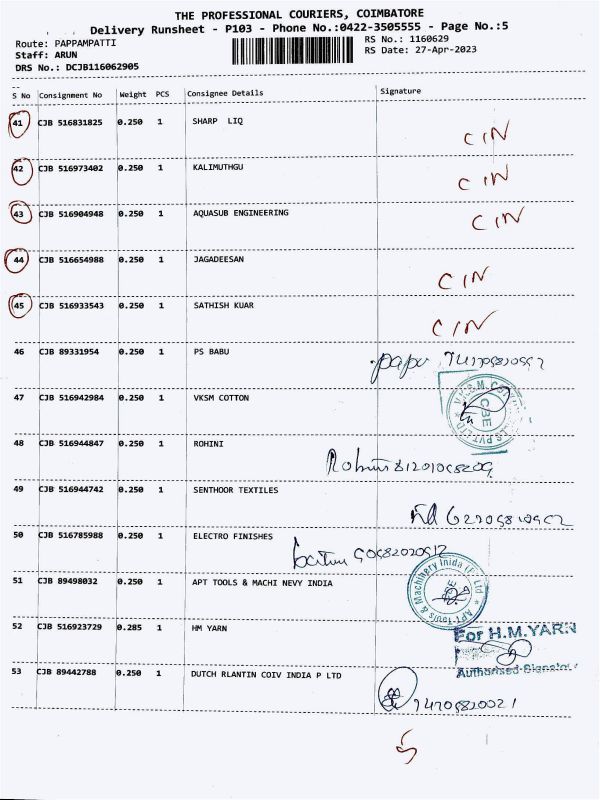 THE PROFESSIONAL COURIERS, COIMBATORE
Delivery Runsheet - P103 - Phone No.:0422-3505555 - Page No.:5
Route: PAPPAMPATTI
RS No.: 1160629
Staff: ARUN
RS Date: 27-Apr-2023
DRS No.: DCJB116062905
S No Consignment No Weight PCS Consignee Details Signature
41 CJB 516831825 0.250 1 SHARP LIQ CIN
42 CJB 516973402 0.250 1 KALIMUTHGU CIN
43 CJB 516904948 0.250 1 AQUASUB ENGINEERING CIN
44 CJB 516654988 0.250 1 JAGADEESAN CIN
45 CJB 516933543 0.250 1 SATHISH KUAR CIN
46 CJB 89331954 0.250 1 PS BABU
47 CJB 516942984 0.250 1 VKSM COTTON
48 CJB 516944847 0.250 1 ROHINI
49 CJB 516944742 0.250 1 SENTHOOR TEXTILES
50 CJB 516785988 0.250 1 ELECTRO FINISHES
51 CJB 89498032 0.250 1 APT TOOLS & MACHI NEVY INDIA
52 CJB 516923729 0.285 1 HM YARN
For H.M.YARN
Authorised Signatory
53 CJB 89442788 0.250 1 DUTCH RLANTIN COIV INDIA P LTD